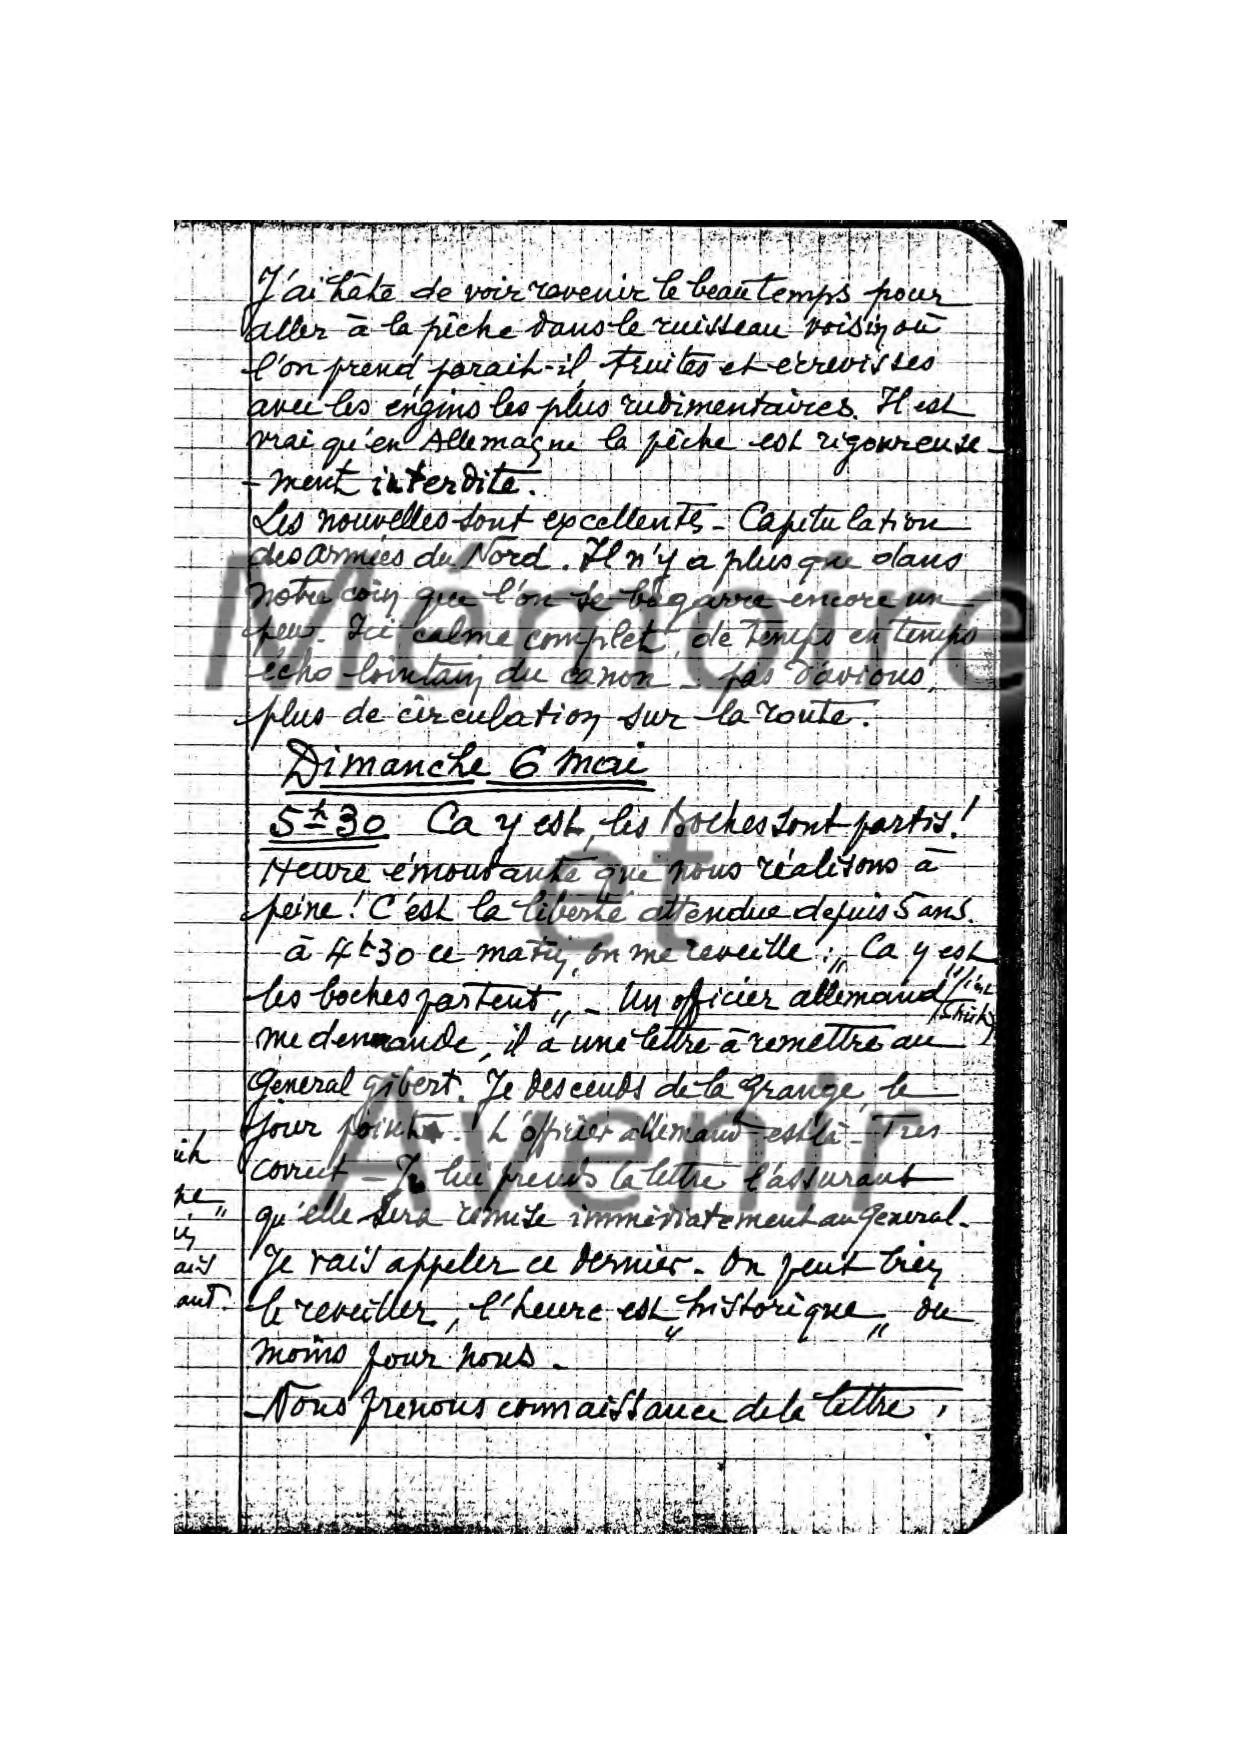 J'ai hâte de voir revenir le beau temps pour
aller à la pêche dans le ruisseau voisin où
l'on prend, parait-il, truites et écrevisses
avec les engins les plus rudimentaires. Il est
vrai qu'en Allemagne la pêche est rigoureuse-
-ment interdite.
Les nouvelles sont excellentes - Capitulation
des armées du Nord. Il n'y a plus que dans
notre coin que l'on se bagarre encore un
peu. Ici calme complet, de temps en temps
écho lointain du canon - pas d'avions,
plus de circulation sur la route.
Mémoire
Dimanche 6 Mai
5h30 Ca y est, les Boches sont partis!
Heure émouvante que nous réalisons à
et
peine! C'est la liberté attendue depuis 5 ans.
à 4h30 ce matin, on me reveille : „ Ca y est
les boches partent „ - Un officier allemand
me demande, il a une lettre à remettre au
General Gibert. Je descends de la grange, le
jour point. L'officier allemand est là - Très
Avenir
correct - Je lui prends la lettre l'assurant
qu'elle sera remise immédiatement au General.
Je vais appeler ce dernier - On peut bien
le reveiller, l'heure est „ historique „ du
moins pour nous -
- Nous prenons connaissance de la lettre,